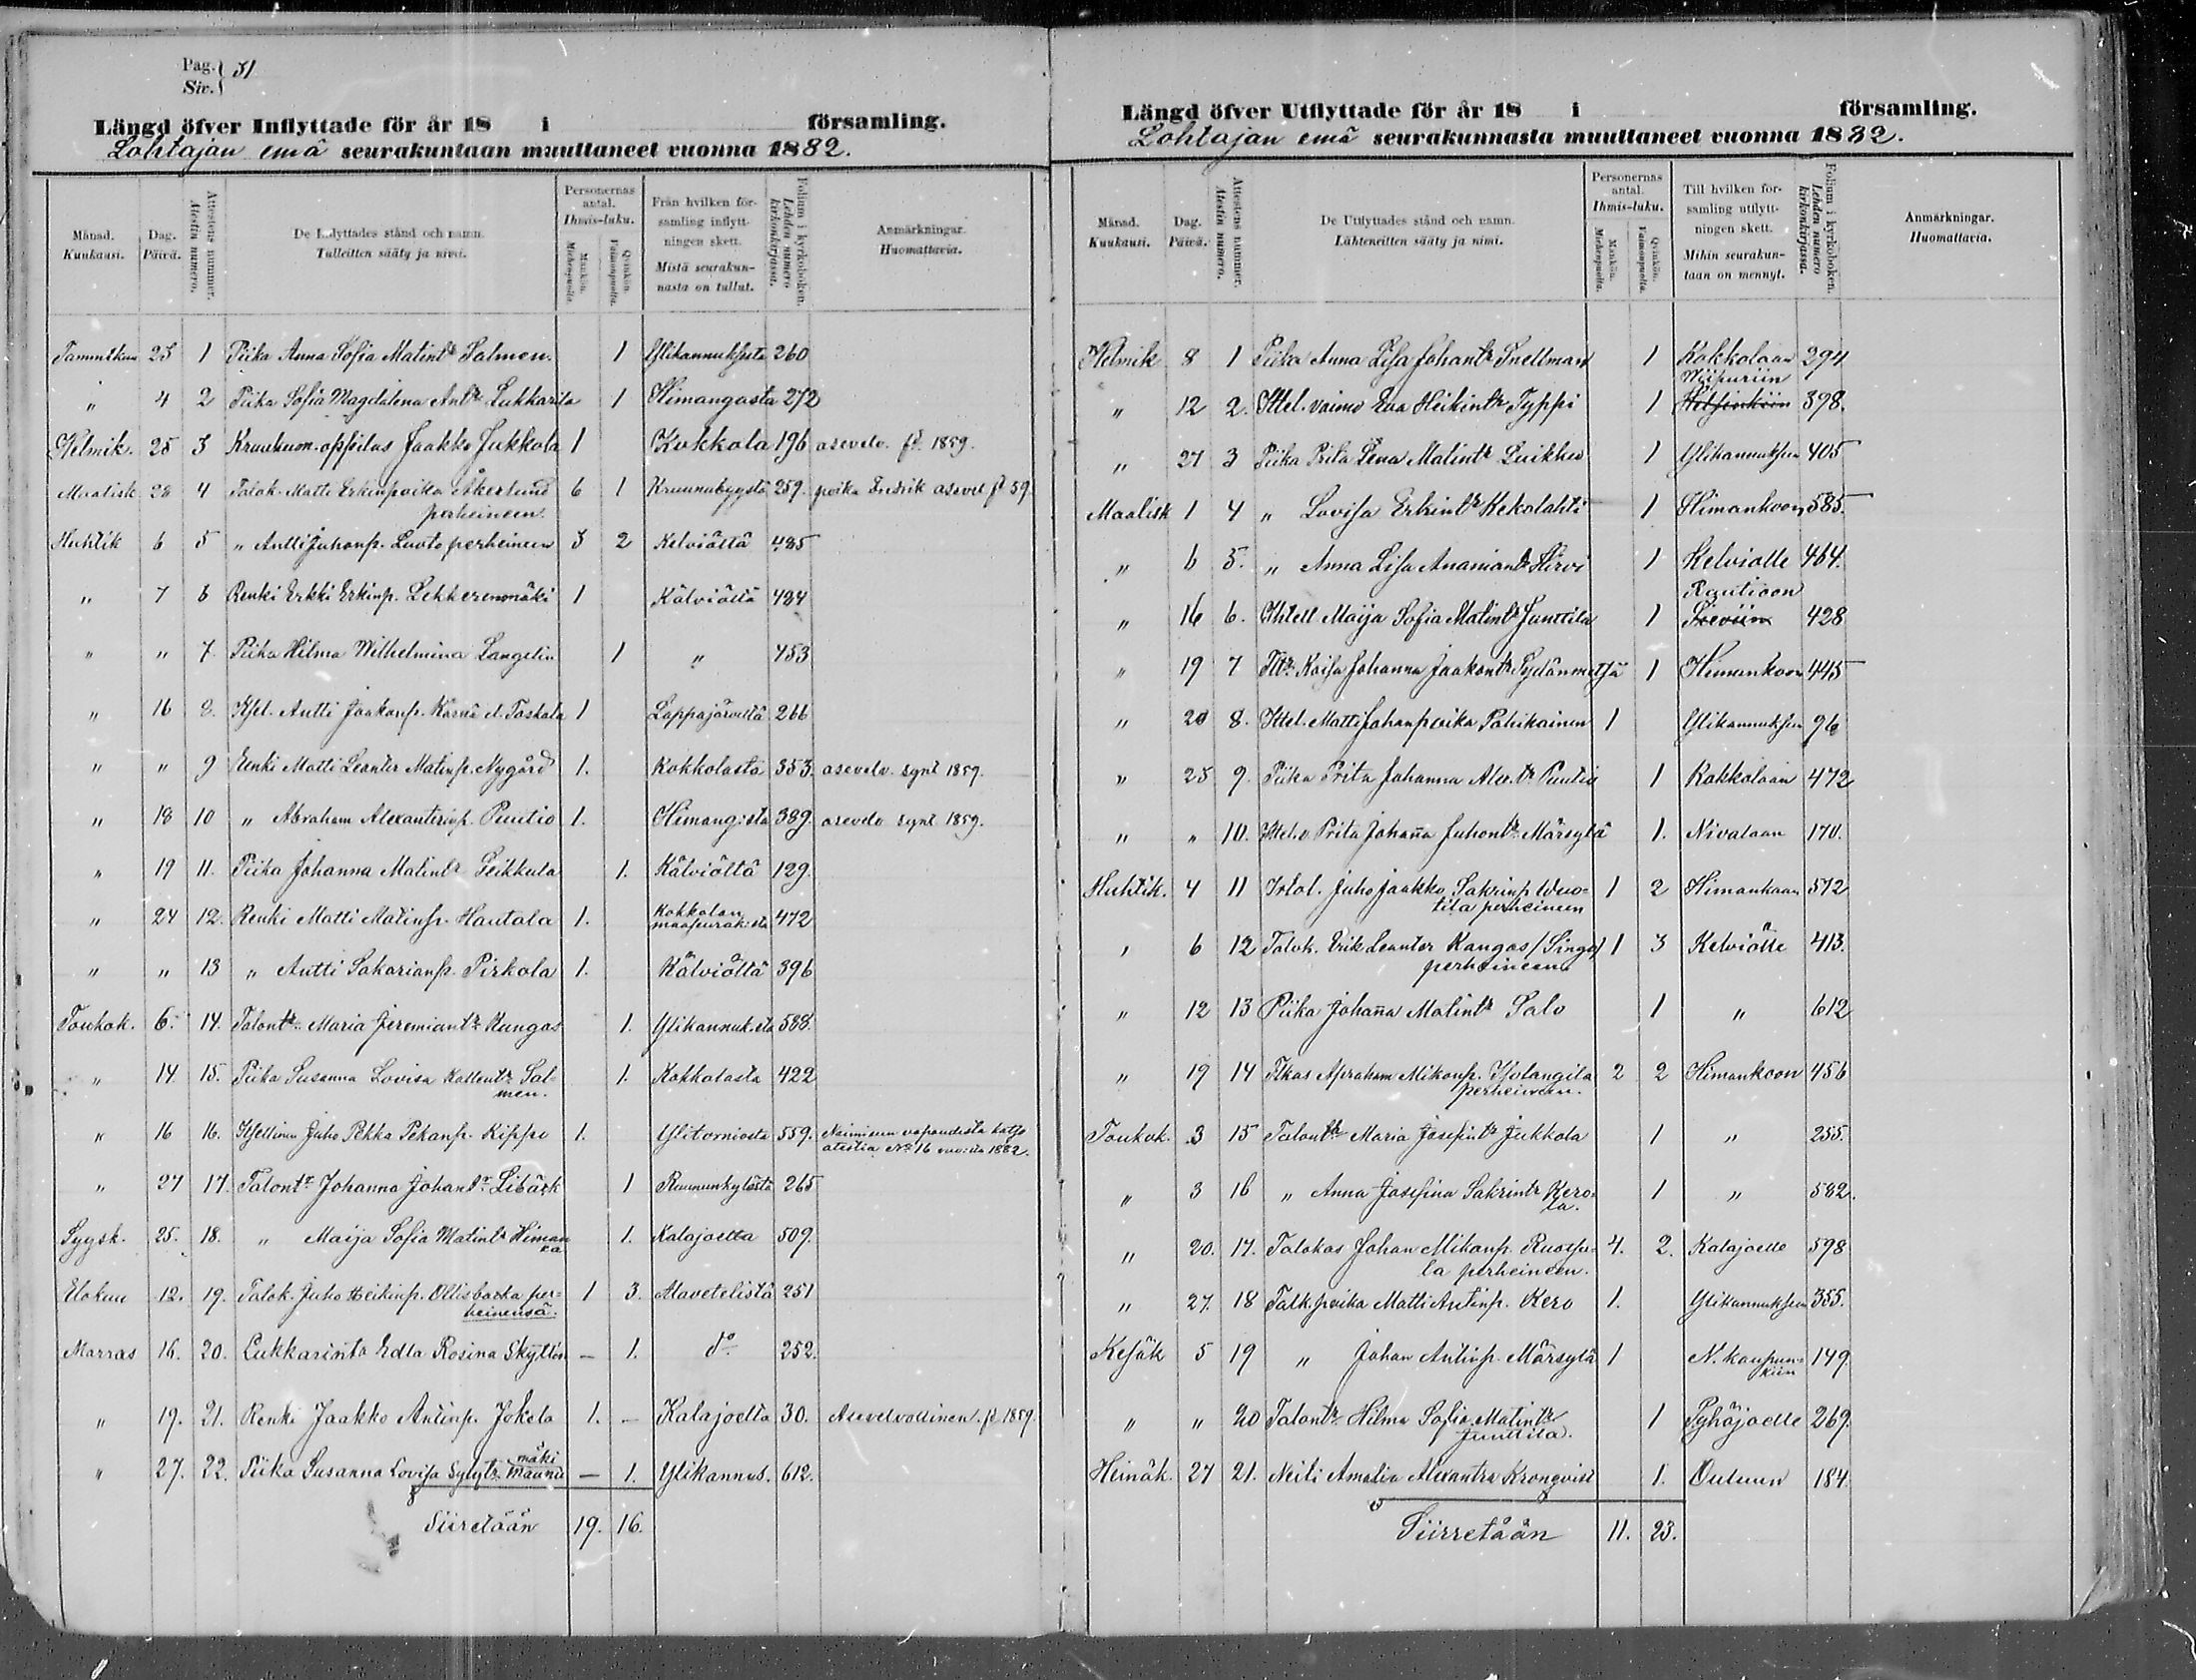 Pag. } 51
Siv. }
Längd öfver Inflyttade för år 18 i församling.
Lohtajan emä seurakuntaan muuttaneet vuonna 1882.
Månad. Kuukausi. Dag. Päivä. Attestens nummer. Atestin numero. De Inflyttades stånd och namn. Tulleitten sääty ja nimi. Personernas antal. Ihmis-luku. Mankön. Miehenpuolia. Qvinkön. Vaimonpuolia. Från hvilken församling inflyttningen skett. Mistä seurakunnasta on tullut. Folium i kyrkoboken. Lehden numero kirkonkirjassa. Anmärkningar. Huomattavia.
Tammikuu 25 1 Piika Anna Sofia Matintr Salmen. 1 Ylikannuksesta 260
" 4 2 Piika Sofia Magdalena Antr Lukkarila 1 Himangasta 272
Helmik. 25 3 Kruukum. oppilas Jaakko Jukkola 1 Kokkola 196 asevelv. fd. 1859.
Maalisk 28 4 Talok. Matti Erkinpoika Åkerlund 6 1 Kruunubyystä 259. poika Fredrik asevel fd 59.
perheineen.
Huhtik 6 5 " Antti Juhonp. Luoto perheineen 3 2 Kelviältä 485
" 7 6 Renki Erkki Erkinp. Lehherenmäki 1 Kälviältä 484
" " 7. Piika Hilma Wilhelmina Langelin 1 " 453
" 16 8. Itsel. Antti Jaakonp. Kärnä el. Taskala 1 Lappajärveltä 266
" " 9 Renki Matti Leanter Matinp. Nygård 1. Kokkolasta 353. asevelv. synt 1859.
" 18 10 " Abraham Alexanterinp. Puutio 1. Himangasta 389. asevelv synt 1859.
" 19 11. Piika Johanna Matintr Leikkala 1. Kälviältä 129.
" 24 12. Renki Matti Matinp. Hautala 1. Kokkolan
maaseurak:sta 472
" " 13 " Antti Sakarianp. Pirkola 1. Kälviältä 396
Toukok. 6. 14. Talontr. Maria Jeremiantr Kangas 1. Ylikannuk.sta 588.
" 14. 15. Piika Susanna Lovisa Kallentr Sal-
men. 1. Kokkolasta 422
" 16 16. Itsellinen Juho Pekka Pekanp. Kippo 1. Ylitorniosta 559. Naimisen vapaudesta katso
atestia No 16 vuosta 1882.
" 27 17. Talontr Johanna Johantr. Libäck 1 Ruununkylästä 265
Syysk. 25. 18. " Maija Sofia Matintr Himan
ka 1. Kalajoelta 509.
Elokuu 12. 19. Talok. Juho Heikinp. Ollisbacka per-
heinensä. 1 3. Alavetelistä 251
Marras 16. 20. Lukkarintr Edla Rosina Skyttön — 1. do 252.
" 19. 21. Renki Jaakko Antinp. Jokela 1. — Kalajoelta 30. Asevelvollinen. fd 1859.
" 27. 22. Piika Susanna Lovisa mäki
Maunu — 1. Ylikannus. 612.
Siiretään 19. 16.
Längd öfver Utflyttade för år 18 i församling.
Lohtajan emä seurakunnasta muuttaneet vuonna 1882.
Månad. Kuukausi. Dag. Päivä. Attestens nummer. Atestin numero. De Utflyttades stånd och namn. Lähteneitten sääty ja nimi. Personernas antal. Ihmis-luku. Mankön. Miehenpuolia. Qvinkön. Vaimonpuolia. Till hvilken församling utflyttningen skett. Mihin seurakuntaan on mennyt. Folium i kyrkoboken. Lehden numero kirkonkirjassa. Anmärkningar. Huomattavia.
Helmik 8 1 Piika Anna Lisa Johantr Snellman 1 Kokkolaan 294
Wiipuriin
" 12 2. Ittel. vaimo Eva Heikintr Typpi 1 Helsinkiin 398.
" 27 3 Piika Prita Lena Matintr Luikku 1 Ylikannuksen 405
Maalisk 1 4 " Lovisa Erkintr Kekolahti 1 Himankoon 585.
" 6 5. " Anna Lisa Ananiantr Hirvi 1 Kelviälle 464.
Rautioon
" 16 6. Ihtell Maija Sofia Matintr Junttila 1 Sieviin 428
" 19 7 Ttr. Kaisa Johanna Jaakontr Sydänmetsä 1 Himankoon 445
" 20 8. Ittel. Matti Johanpoika Pahikainen 1 Ylikannuksen 96
" 25 9. Piika Prita Johanna Alex.tr Puutio 1 Kokkolaan 472
" " 10. Ittel.v Prita Johanna Juhontr. Märsylä 1. Nivalaan 170.
Huhtik. 4 11 Irtol. Juho Jaakko Sakrinp Wuo-
tila perheineen 1 2 Himankaan 572
" 6 12 Talok. Erik Leanter Kangas /Singo/ 1 3 Kelviälle 413.
perheineen
" 12 13 Piika Johanna Matintr Salo 1 " 612
" 19 14 Tlkas Apraham Mikonp. Isolangila 2 2 Himankoon 456
perheineen.
Toukok. 3 15 Talontr Maria Josefintr Jukkola 1 " 255.
" 3 16 " Anna Josefina Sakrintr Kero-
la. 1 " 582.
" 20. 17. Talokas Johan Mikanp. Ruotsa-
la perheineen. 4. 2. Kalajoelle 598
" 27. 18 Talk. poika Matti Antinp. Kero 1. Ylikannuksen 355.
Kesäk 5 19 " Johan Antinp. Märsylä 1 N. kaupun-
kiin 149.
" " 20 Talontr. Hilma Sofia Matintr
Junttila. 1 Pyhäjoelle 269.
Heinäk. 27 21. Neiti Amalia Alexantra Kronqvist 1. Ouluun 184.
Siirretään 11. 23.